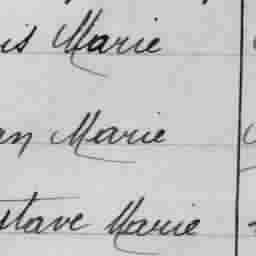 is Marie
en Marie
stave Marie